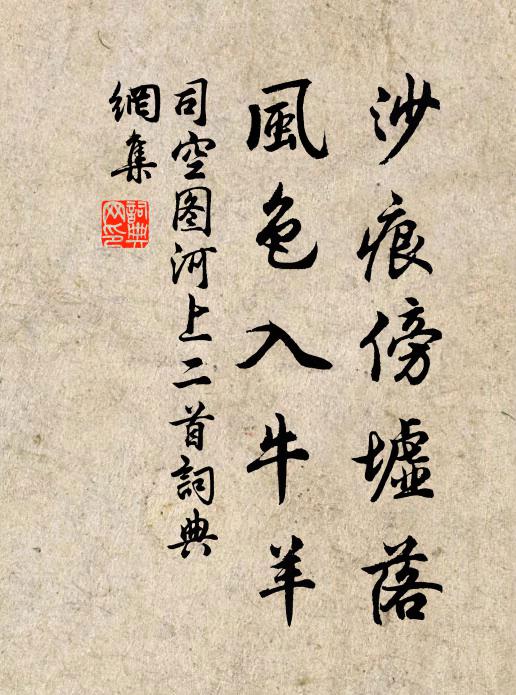 沙痕傍墟落
風色入牛羊
司空图河上二首詞典
網集
詞典
网印